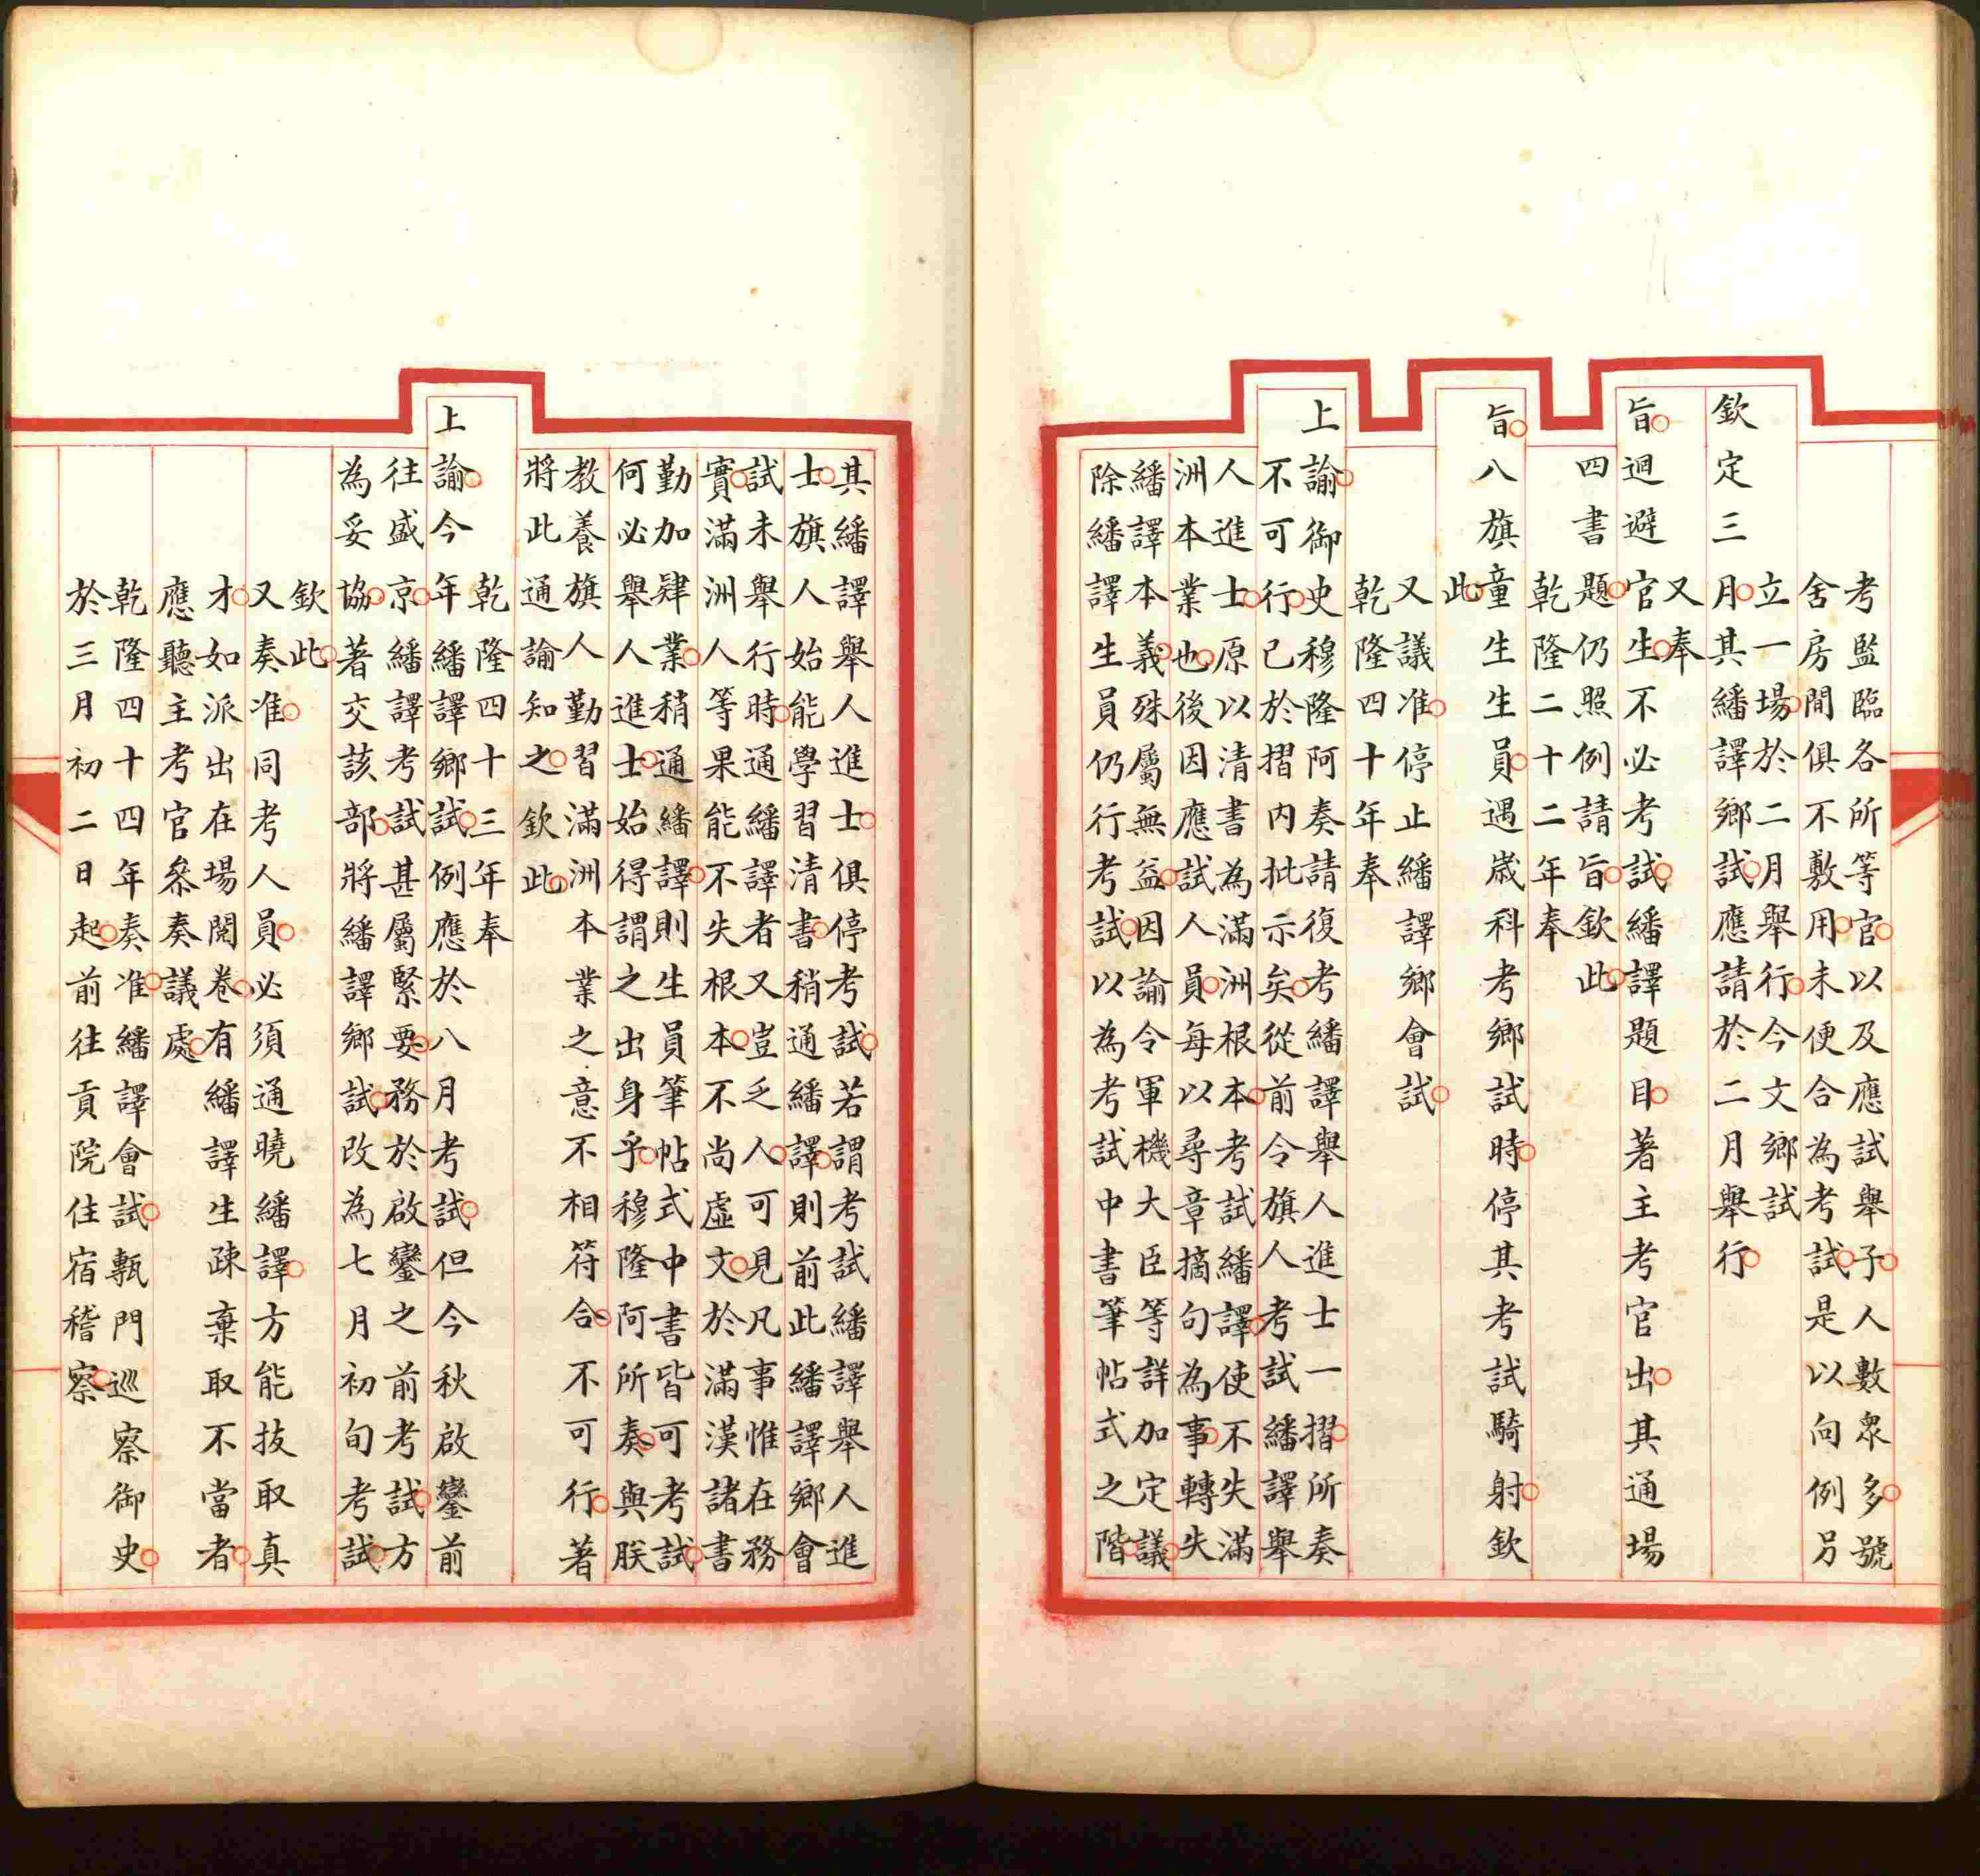 考監臨各所等官以及應試舉子人數衆多號
舍房間俱不敷用未便合為考試是以向例另
立一場於二月舉行今文鄉試
欽定三月其繙譯鄉試應請於二月舉行
又奉
旨迴避官生不必考試繙譯題目著主考官出其通場
四書題仍照例請旨欽此
乾隆二十二年奉
旨八旗童生生員遇歲科考鄉試時停其考試騎射欽
此
又議准停止繙譯鄉會試
乾隆四十年奉
上諭御史穆隆阿奏請復考繙譯舉人進士一摺所奏
不可行已於摺內批示矣從前令旗人考試繙譯舉
人進士原以清書為滿洲根本考試繙譯使不失滿
洲本業也後因應試人員每以尋章摘句為事轉失
繙譯本義殊屬無益因諭令軍機大臣等詳加定議
除繙譯生員仍行考試以為考試中書筆帖式之階
其繙譯舉人進士俱停考試若謂考試繙譯舉人進
士旗人始能學習清書稍通繙譯則前此繙譯鄉會
試未舉行時通繙譯者又豈乏人可見凡事惟在務
實滿洲人等果能不失根本不尚虛文於滿漢諸書
勤加肄業稍通繙譯則生員筆帖式中書皆可考試
何必舉人進士始得謂之出身乎穆隆阿所奏與朕
教養旗人勤習滿洲本業之意不相符合不可行著
將此通諭知之欽此
乾隆四十三年奉
上諭今年繙譯鄉試例應於八月考試但今秋啟鑾前
往盛京繙譯考試甚屬緊要務於啟鑾之前考試方
為妥協著交該部將繙譯鄉試改為七月初旬考試
欽此
又奏准同考人員必須通曉繙譯方能拔取真
才如派出在場閱卷有繙譯生疎棄取不當者
應聽主考官叅奏議處
乾隆四十四年奏准繙譯會試甎門巡察御史
於三月初二日起前往貢院住宿稽察